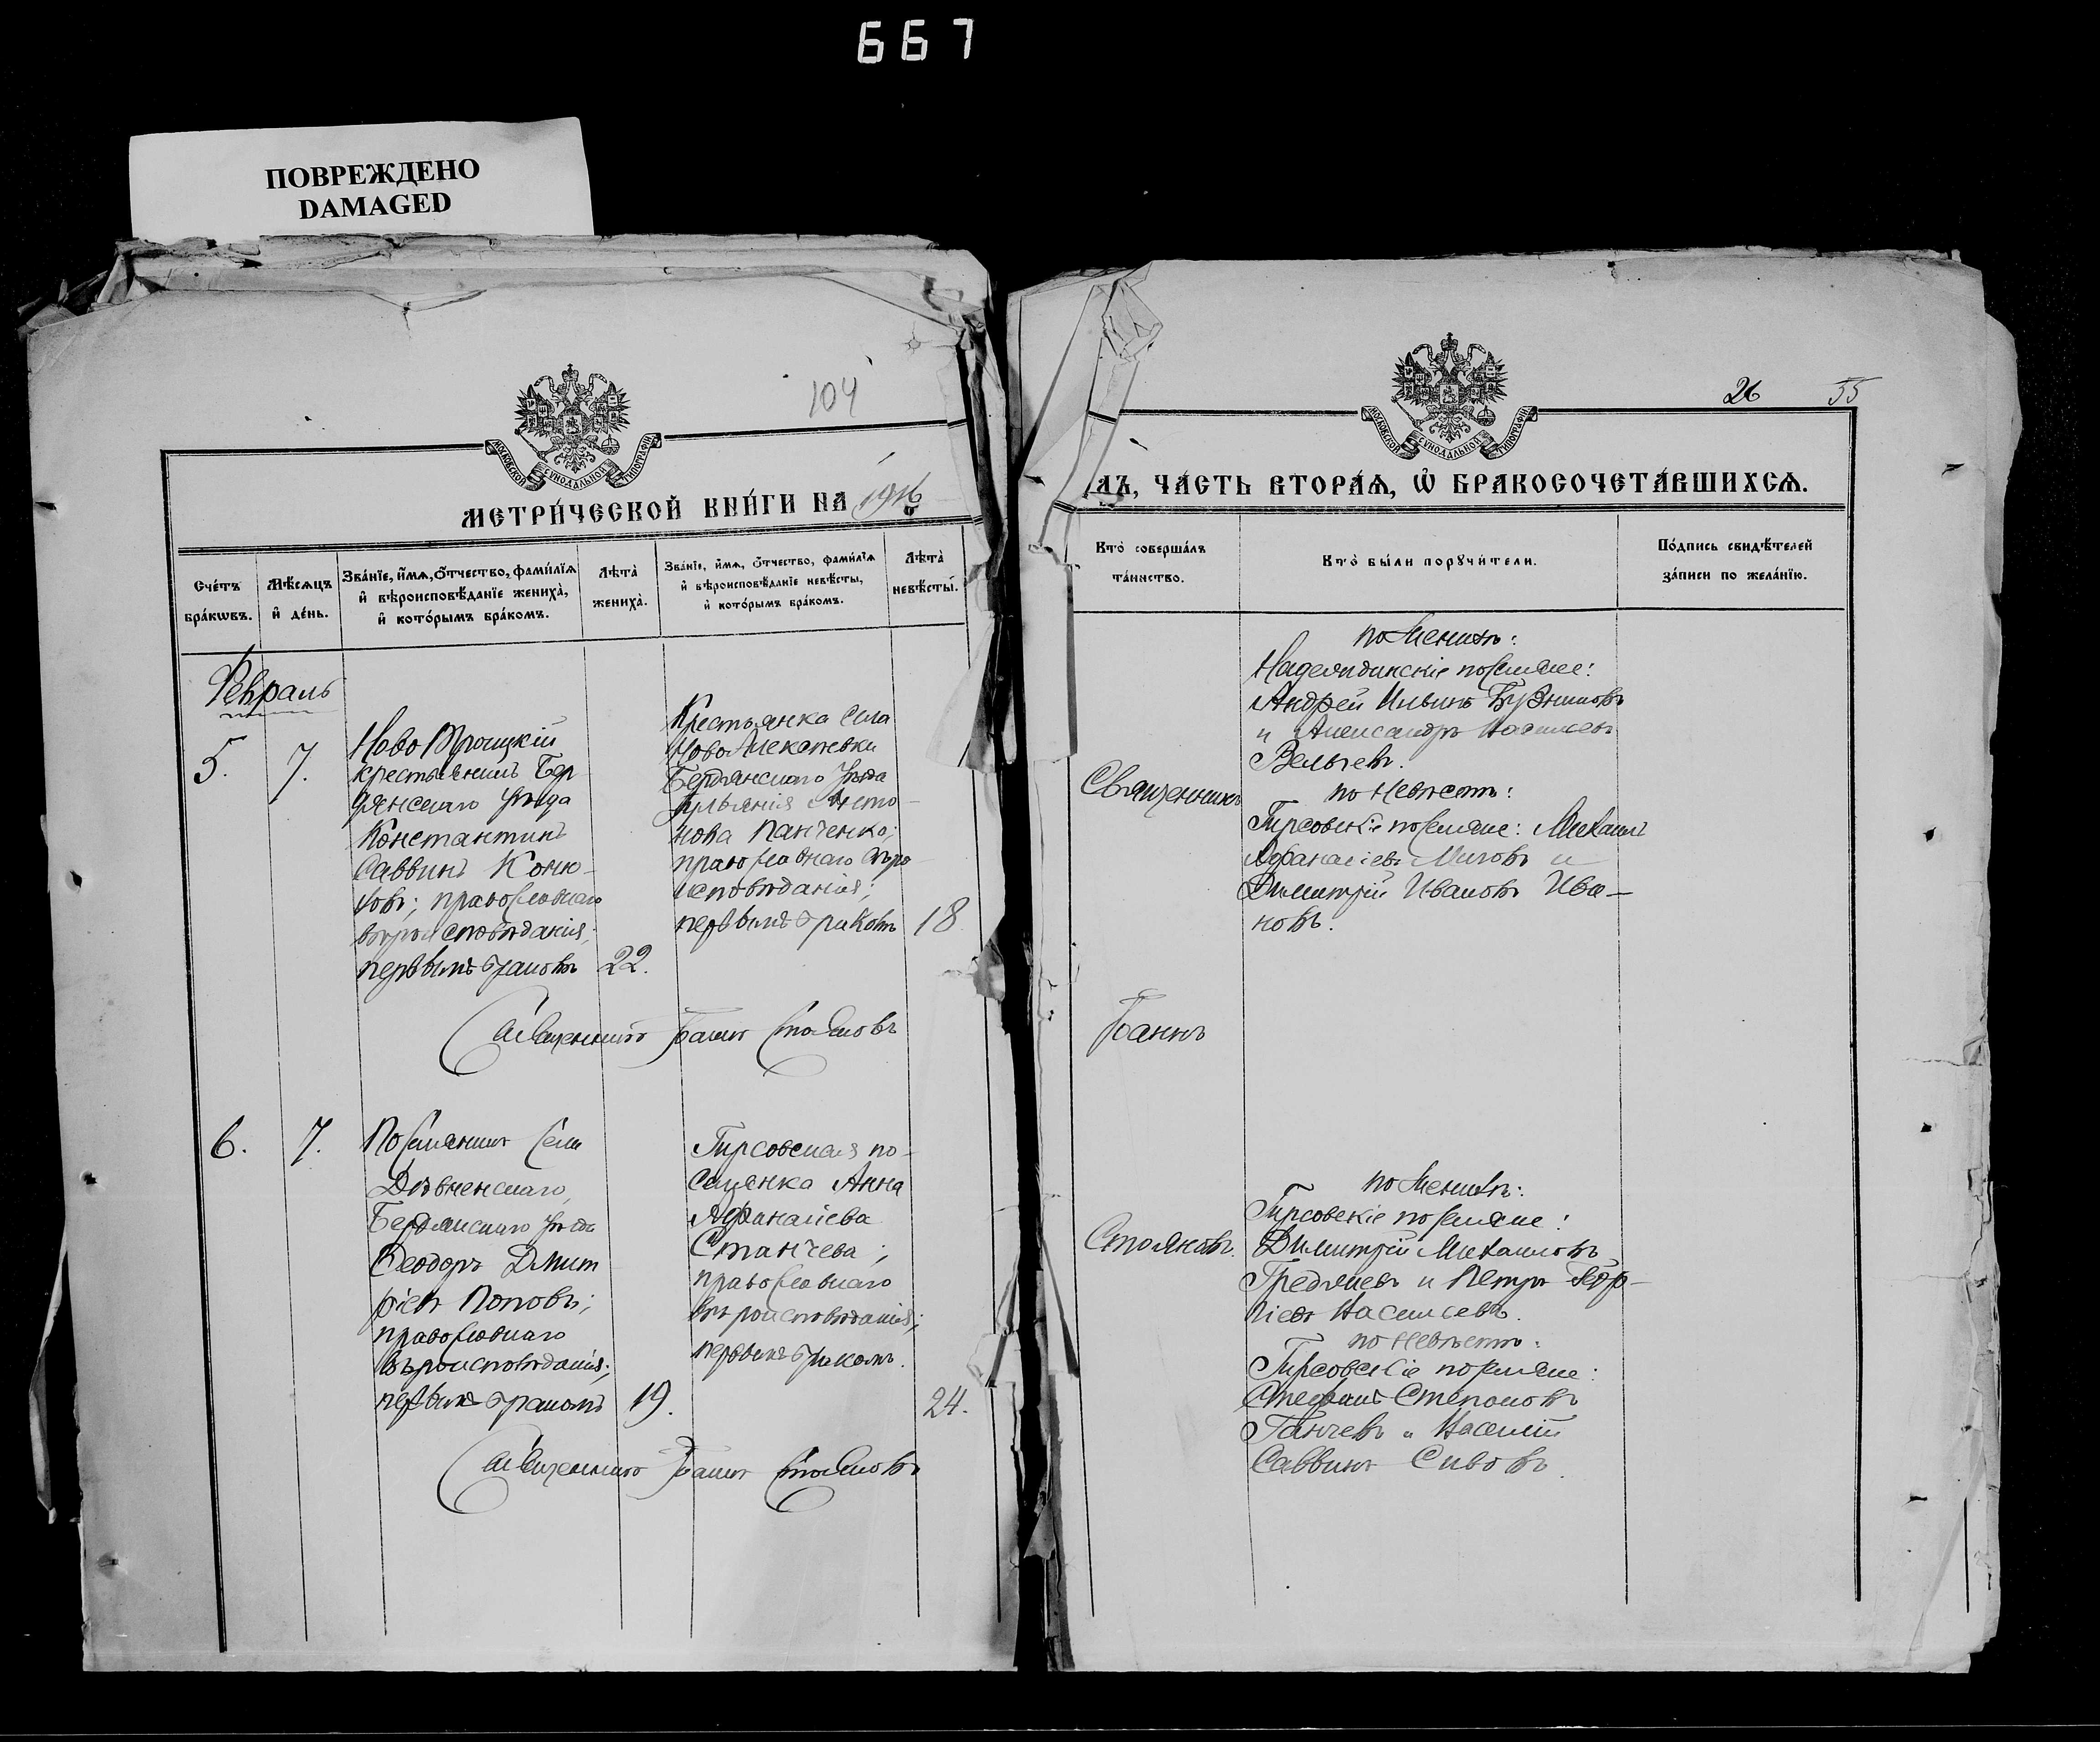 667
ПОВРЕЖДЕНО
DAMAGED
104
МОСКОВСКОЙ СѴНОДАЛЬНОЙ ТИПОГРАФІИ
МЕТРИ́ЧЕСКОЙ КНИ́ГИ НА 1916
Сче́тъ бра́кѡвъ.
Мѣ́сѧцъ и҆ де́нь.
Зва́нїе, и҆́мѧ, ѻ҆́тчество, фами́лїѧ и҆ вѣроисповѣ́данїе жениха̀, и҆ кото́рымъ бра́комъ.
Лѣта̀ жениха̀.
Зва́нїе, и҆́мѧ, ѻ҆́тчество, фами́лїѧ и҆ вѣроисповѣ́данїе невѣ́сты, и҆ кото́рымъ бра́комъ.
Лѣта̀ невѣ́сты.
Февраль
5.
7.
Ново Троицкій
крестьянинъ Бер
дянскаго уѣзда
Константинъ
Саввинъ
православнаго
вѣроисповѣданія;
первымъ бракомъ
22.
Крестьянка села
Ново Алексеевки
Бердянскаго уѣзда
Анто-
нова Панченко;
православнаго вѣро
исповѣданія;
первымъ бракомъ
18
Священникъ Іоаннъ Стояновъ
6.
7.
Поселянинъ села
Дѣвненскаго,
Бердянскаго уѣзда
Ѳеодоръ Димит
ріевъ Поповъ;
православнаго
вѣроисповѣданія;
первымъ бракомъ
19.
Гирсовская по-
селянка Анна
Афанасіева
Станчева;
православнаго
вѣроисповѣданія;
первымъ бракомъ.
24.
Священникъ Іоаннъ Стояновъ
26
55
МОСКОВСКОЙ СѴНОДАЛЬНОЙ ТИПОГРАФІИ
ДЪ, ЧА́СТЬ ВТОРА́Ѧ, Ѡ҆ БРАКОСОЧЕТА́ВШИХСѦ.
Кто̀ соверша́лъ та́инство.
Кто̀ бы́ли порꙋчи́тели.
По́дпись свидѣ́телей за́писи по жела́нїю.
Священникъ
Іоаннъ
Стояновъ.
по женихѣ:
поселяне:
Андрей Ильинъ
и Александръ Васильевъ
Вельчевъ.
по невѣстѣ:
Гирсовскіе поселяне: Михаилъ
Афанасіевъ Митовъ и
Димитрій Ивановъ Ива-
новъ.
по женихѣ:
Гирсовскіе поселяне:
Димитрій Михаиловъ
и Петръ Геор-
гіевъ Василевъ.
по невѣстѣ:
Гирсовскіе поселяне:
Стефанъ Степановъ
Ганчевъ и Василій
Саввинъ Сивовъ.